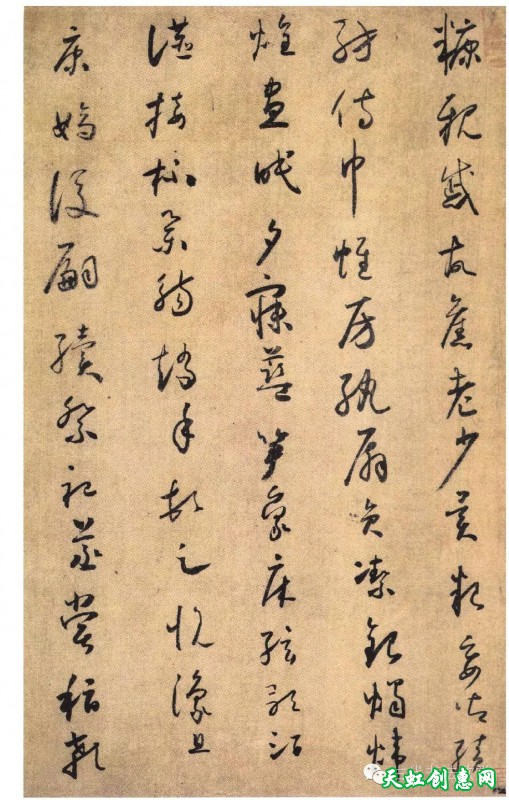 糠親戚故舊老少異糧妾御績
紡侍巾帷房紈扇員潔銀燭煒
煌晝眠夕寐藍筍象床弦歌酒
讌接杯舉觴矯手頓足悅豫且
康嫡後嗣續祭祀蒸嘗稽顙
天虹创惠网